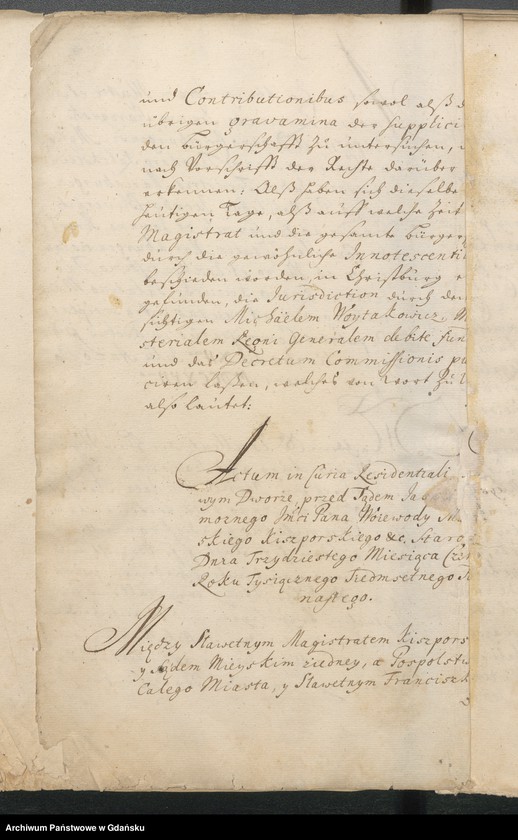 und Contributionibus sowol alß d
übrigen gravamina der Supplici
den Bürgerschafft zu untersuchen, u
nach Vorschrifft der Rechte darüber
erkennen: Alß haben sich dieselbe
heutigen Tage, alß auff welche Zeit
Magistrat und die gesamte Bürger
durch die gewöhnliche Innotescenti
beschieden worden, in Christburg e
gefunden, die Jurisdiction durch den
sichtigen Michaelem Woytakowicz, M
sterialem Regni Generalem debite fun
und das Decretum Commissionis pu
ciren laßen, welches von Wort zu W
also lautet:
Actum in Curia Residentiali
wym Dworze, przed Sądem Jas
możnego Jmści Pana Woiewody M
skiego Kiszporskiego &c. Staro
Dnia Trzydziestego Miesiąca Cze
Roku Tysiącznego Siedmsetnego
nastego.
Między Sławetnym Magistratem Kiszpors
y Sądem Mieyskim z iedney, a Pospolstw
Całego Miasta, y Sławetnym Francisz
Archiwum Państwowe w Gdańsku